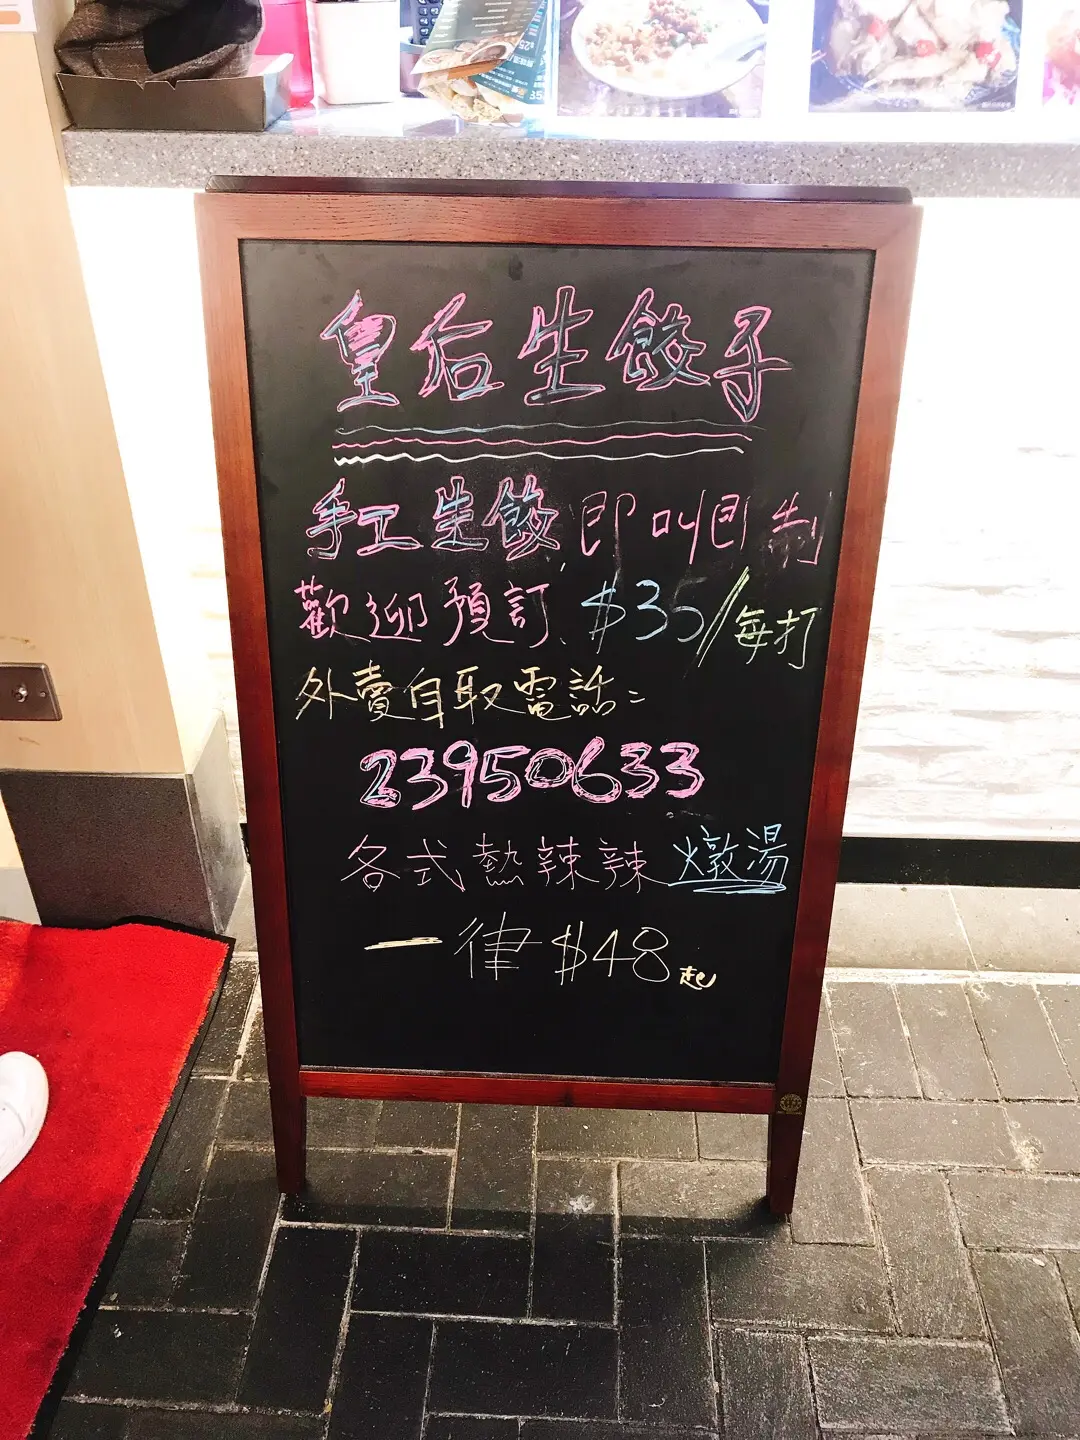 皇后生餃子
手工生餃 即叫即制
歡迎預訂 $35/每打
外賣自取電話:
23950633
各式熱辣辣燉湯
一律 $48起